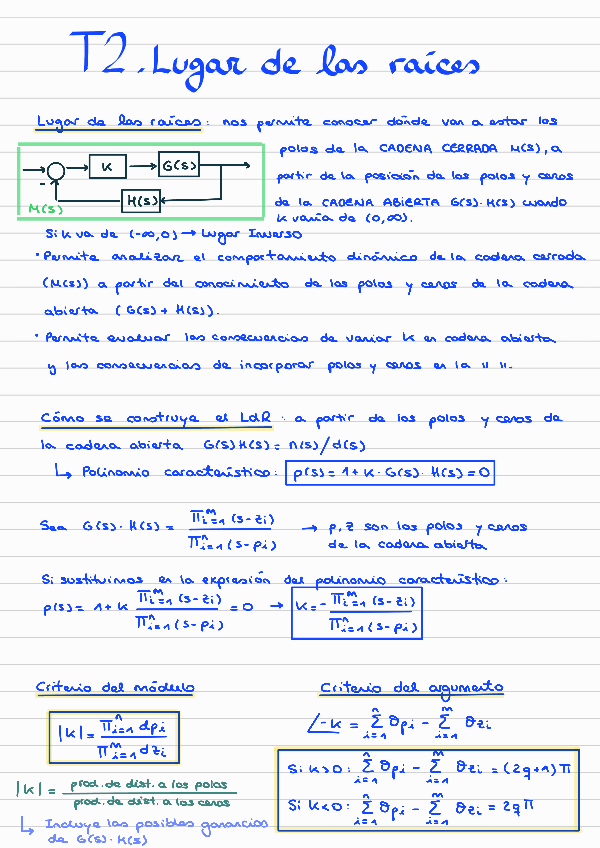 T2. Lugar de las raíces
Lugar de las raíces: nos permite conocer dónde van a estar los
polos de la CADENA CERRADA M(s), a
partir de la posición de los polos y ceros
de la CADENA ABIERTA G(s)·H(s) cuando
K varía de (0,∞).
K
G(s)
-
H(s)
M(s)
Si K va de (-∞,0) → Lugar Inverso
· Permite analizar el comportamiento dinámico de la cadena cerrada
(M(s)) a partir del conocimiento de los polos y ceros de la cadena
abierta (G(s) + H(s)).
· Permite evaluar las consecuencias de variar K en cadena abierta
y las consecuencias de incorporar polos y ceros en la " ".
Cómo se construye el LdR: a partir de los polos y ceros de
la cadena abierta G(s)H(s) = n(s)/d(s)
↳ Polinomio característico: p(s) = 1 + K · G(s) · H(s) = 0
Sea G(s)·H(s) = Π_{i=1}^m (s-zi) / Π_{i=1}^n (s-pi) → p, z son los polos y ceros
de la cadena abierta
Si sustituimos en la expresión del polinomio característico:
p(s) = 1 + K Π_{i=1}^m (s-zi) / Π_{i=1}^n (s-pi) = 0 → K = - Π_{i=1}^m (s-zi) / Π_{i=1}^n (s-pi)
Criterio del módulo
|K| = Π_{i=1}^n dpi / Π_{i=1}^m dzi
|K| = prod. de dist. a los polos / prod. de dist. a los ceros
↳ Incluye las posibles ganancias
de G(s)·H(s)
Criterio del argumento
∠-K = Σ_{i=1}^n θpi - Σ_{i=1}^m θzi
Si K>0: Σ_{i=1}^n θpi - Σ_{i=1}^m θzi = (2q+1)π
Si K<0: Σ_{i=1}^n θpi - Σ_{i=1}^m θzi = 2qπ